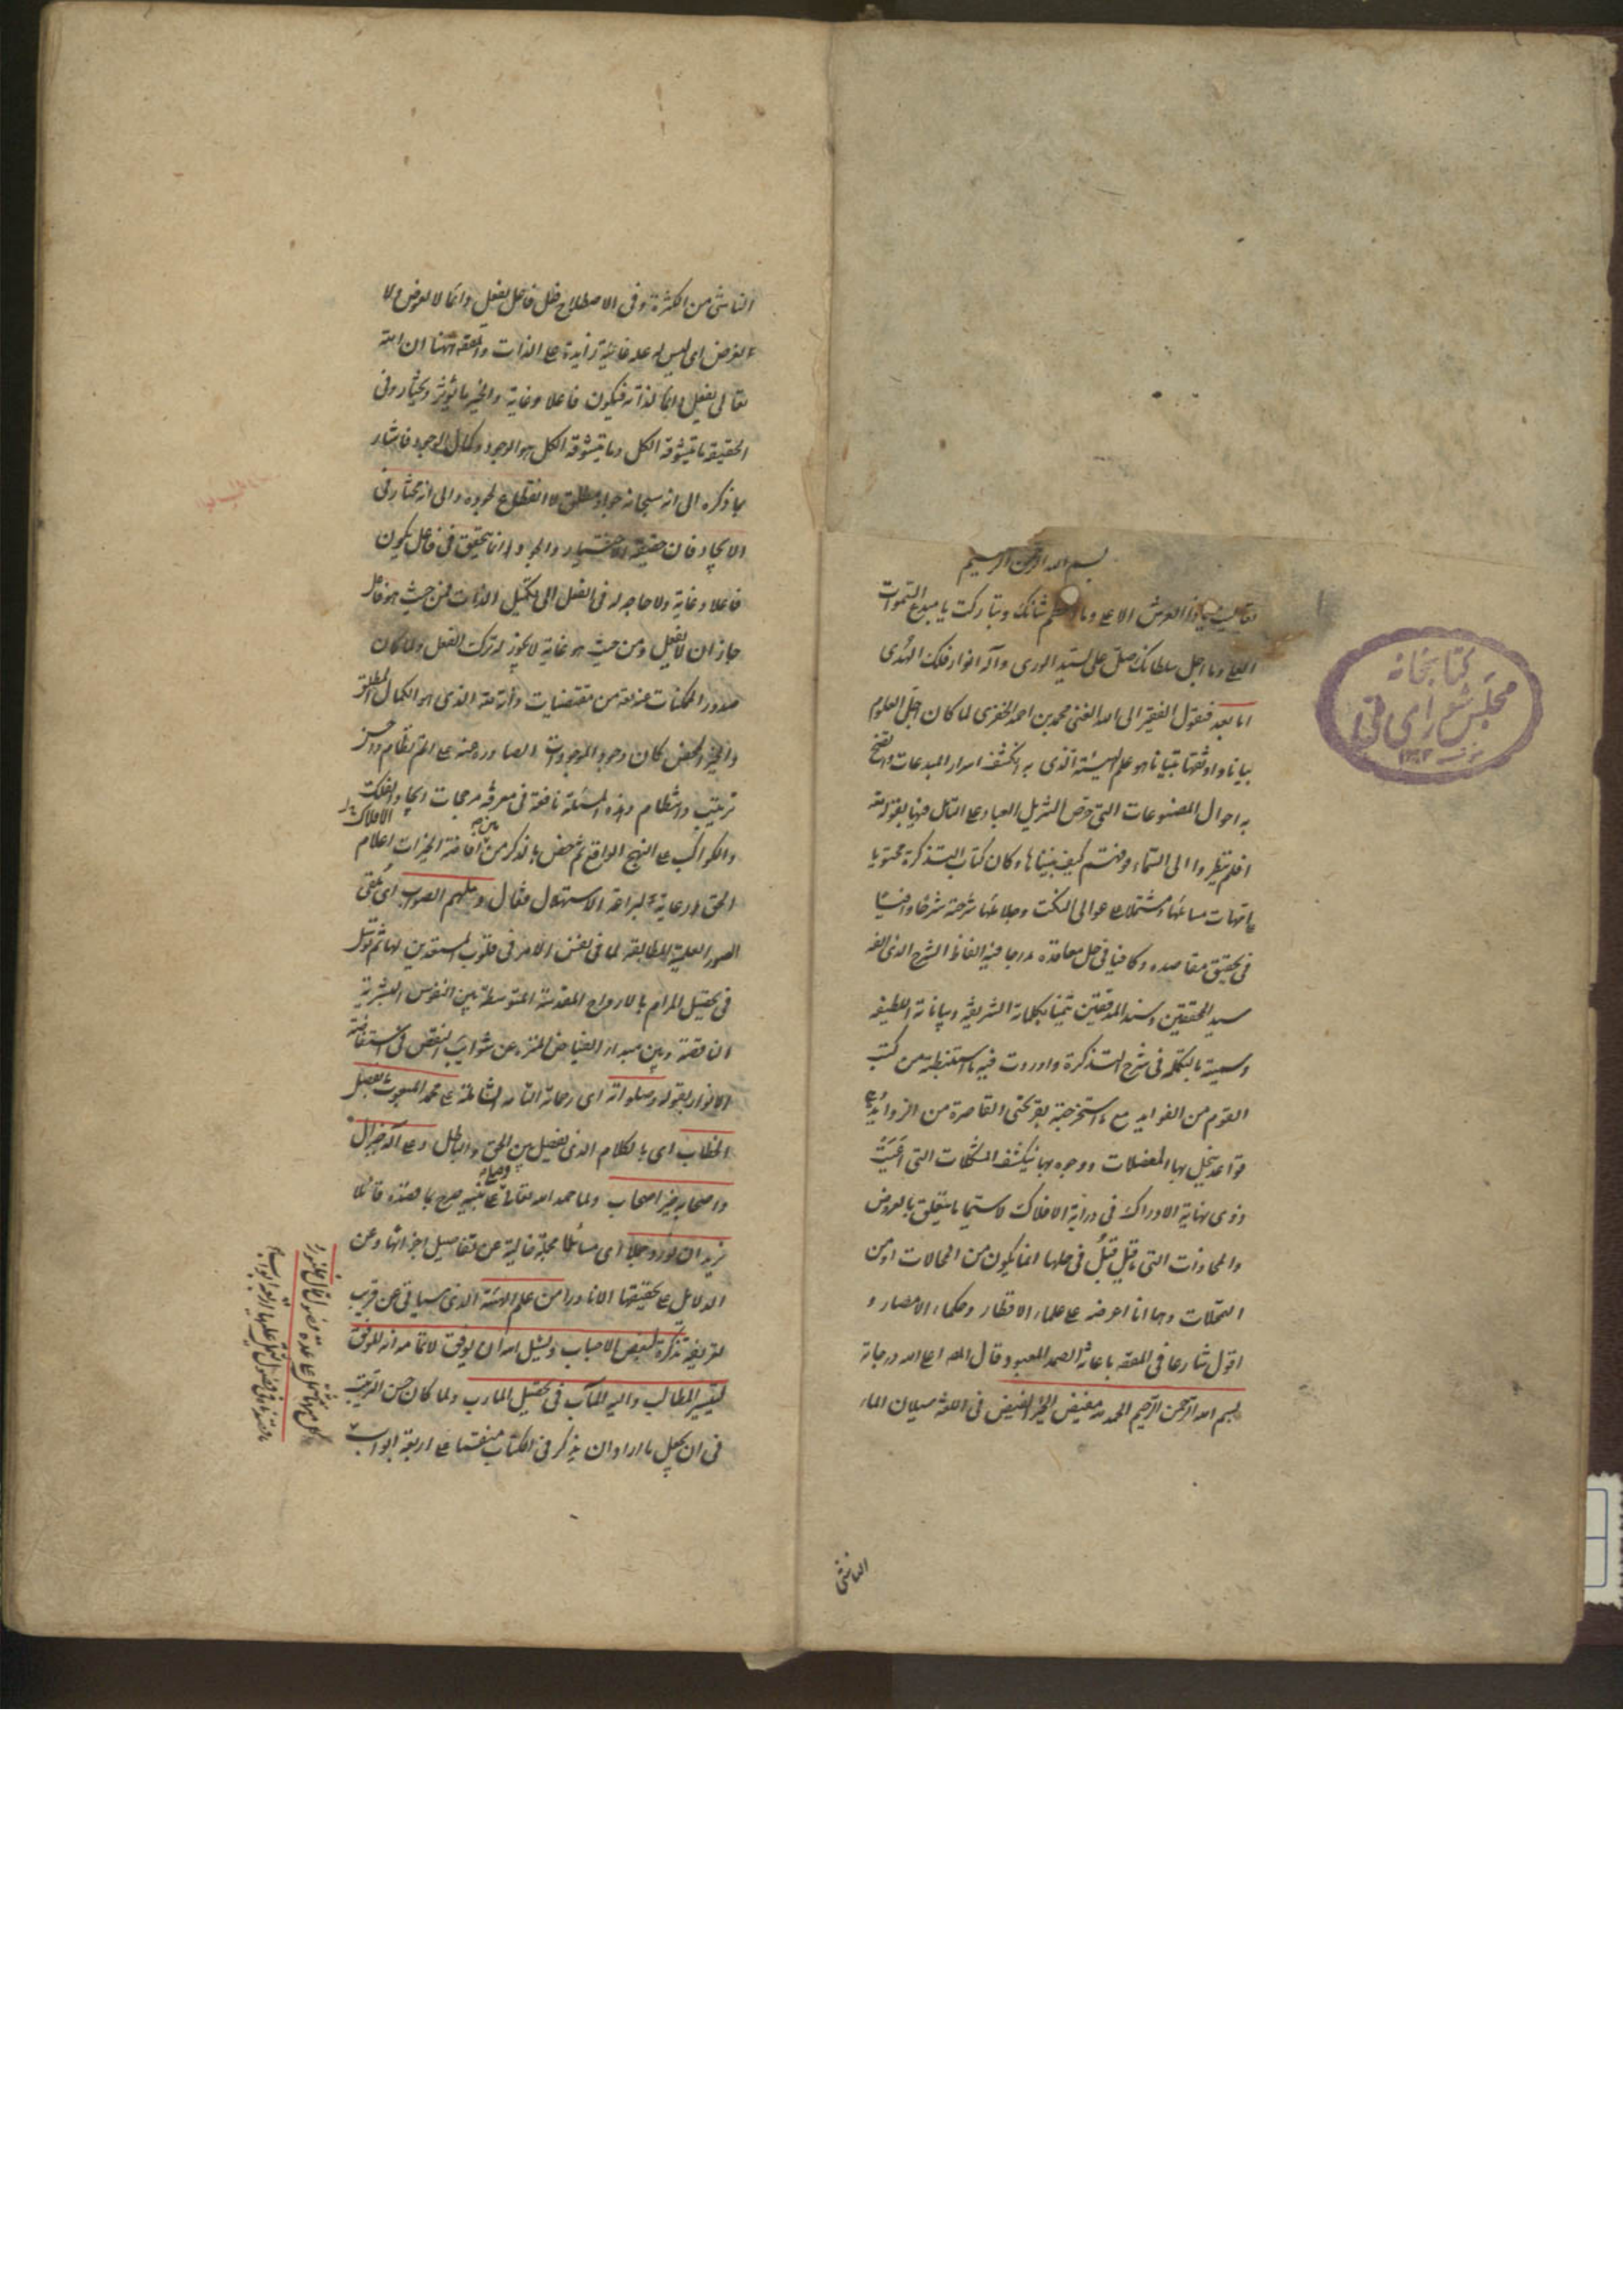 بسم الله الرحمن الرحيم
تعاليت يا ذا العرش الاعلى وما اعظم شانك وتباركت يا مبدع السموات
العلى وما اجل سلطانك صل على سيد الورى وآله انوار فلك الهدى
اما بعد فيقول الفقير الى الله الغنى محمد بن احمد الخفرى لما كان اجل العلوم
بيانا واوثقها تبيانا هو علم الهيئة الذى به انكشف اسرار المبدعات واتضح
به احوال المصنوعات التى حرض التنزيل العباد على التامل فيها بقوله تعالى
افلم ينظروا الى السماء فوقهم كيف بنيناها وكان كتاب التذكرة محتويا
على امهات مسائلها ومشتملا على عوالى النكت ودلائلها شرحته شرحا وافيا
فى تحقيق مقاصده وكافيا فى حل معاقده مدرجا فيه الفاظ الشرح الذى الفه
سيد المحققين وسند المدققين تيمنا بكلماته الشريفة وبياناته اللطيفة
وسميته بالتكملة فى شرح التذكرة واوردت فيه ما استنبطته من كتب
القوم من الفوايد مع ما استخرجته بقريحتى القاصرة من الزوايد
قواعد ينحل بها المعضلات ووجوه بها ينكشف المشكلات التى اعيت
ذوى نهاية الادراك فى دراية الافلاك لا سيما ما يتعلق بالعروض
والمحاذات التى ما قيل قبل فى حلها انما يكون من المحالات او من
التمحلات وها انا اعرضه على علماء الاقطار وحكماء الامصار و
اقول شارعا فى المقصد باعانة الصمد المعبود قال المص اعلى الله درجاته
بسم الله الرحمن الرحيم الحمد لله مفيض الخير الفيض فى اللغة سيلان الماء
الناشى
كتابخانه
مجلس شوراى ملى
الناشى من الكثرة وفى الاصطلاح فعل فاعل يفعل دائما لا لعوض ولا
لغرض اى ليس له علة غائية زايدة على الذات والمقصد ههنا ان الله
تعالى يفعل دائما لذاته فيكون فاعلا وغاية والخير ما يؤثر ويختار وفى
الحقيقة ما يتشوقه الكل وما يتشوقه الكل هو الوجود وكمال الوجود فاشار
بما ذكره الى انه سبحانه جواد مطلق لا انقطاع لجوده والى انه مختار فى
الايجاد فان حقيقة الاختيار والجود انما يتحقق فى فاعل يكون
فاعلا وغاية ولا حاجة له فى الفعل الى تكميل الذات فمن حيث هو فاعل
جاز ان لا يفعل ومن حيث هو غاية لا يجوز له ترك الفعل ولما كان
صدور الممكنات عنه تعالى من مقتضيات ذاته تعالى الذى هو الكمال المطلق
والخير المحض كان وجود الموجودات الصادرة عنه على اتم نظام واحسن
ترتيب وانتظام وهذه المسئلة نافعة فى معرفة مرجحات ايجاد الفلك
والكواكب على النهج الواقع ثم خص بالذكر من بين افاضة الخيرات اعلام
الحق ورعاية لبراعة الاستهلال فقال وملهم الصواب اى ملقى
الصور العلمية المطابقة لما فى نفس الامر فى قلوب المستعدين لها ثم توسل
فى تحصيل المرام بالارواح المقدسة المتوسطة بين النفوس البشرية
الناقصة وبين مبدا الفياض المنزه عن شوايب النقص فى استفاضة
الانوار بقوله وصلواته اى رحماته التامة الشاملة على محمد المبعوث بفصل
الخطاب اى بالكلام الذى يفصل بين الحق والباطل وعلى آله خير آل
واصحابه خير اصحاب ولما حمد الله تعالى وصلى على نبيه صرح بما قصده قائلا
نريد ان نورد جملا اى مسائل مجملة خالية عن تفاصيل اجزائها وعن
الدلايل على تحقيقها الا نادرا من علم الهيئة الذى سياتى عن قريب
تعريفه تذكرة لبعض الاحباب ونسئل الله ان يوفق لاتمامه انه الموفق
لتيسير المطالب واليه المآب فى تحصيل المارب ولما كان حسن الترتيب
فى ان يجعل ما اراد ان يذكر فى الكتاب منقسما على اربعة ابواب